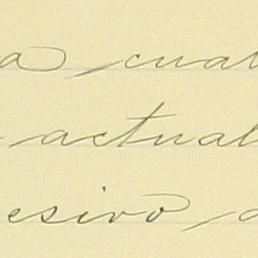 a cual
actual
esivo